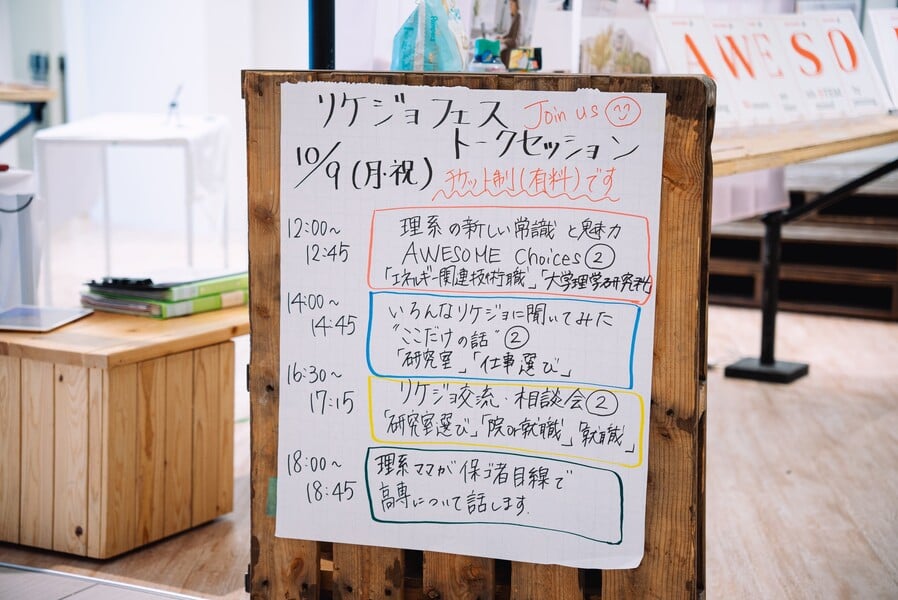 リケジョフェス Join us
トークセッション
10/9(月・祝)
チケット制(有料)です
12:00~
12:45
理系の新しい常識と魅力
AWESOME Choices②
「エネルギー関連技術職」「大学理学研究科」
14:00~
14:45
いろんなリケジョに聞いてみた
"ここだけの話"②
「研究室」「仕事選び」
16:30~
17:15
リケジョ交流・相談会②
「研究室選び」「院or就職」「就職」
18:00~
18:45
理系ママが保ゴ者目線で
高専について話します.
AWESO